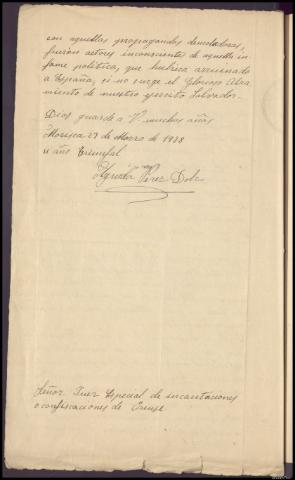 con aquellas propagandas demoledoras,
fueron actores inconscientes de aquella in
fame política, que hubiera arruinado
a España, si no surge el Glorioso Alza
miento de nuestro ejercito Salvador.
Dios guarde a V. muchos años
27 de Marzo de 1938
II año Triunfal
Pérez
Señor Juez Especial de incautaciones
o confiscaciones de Orense